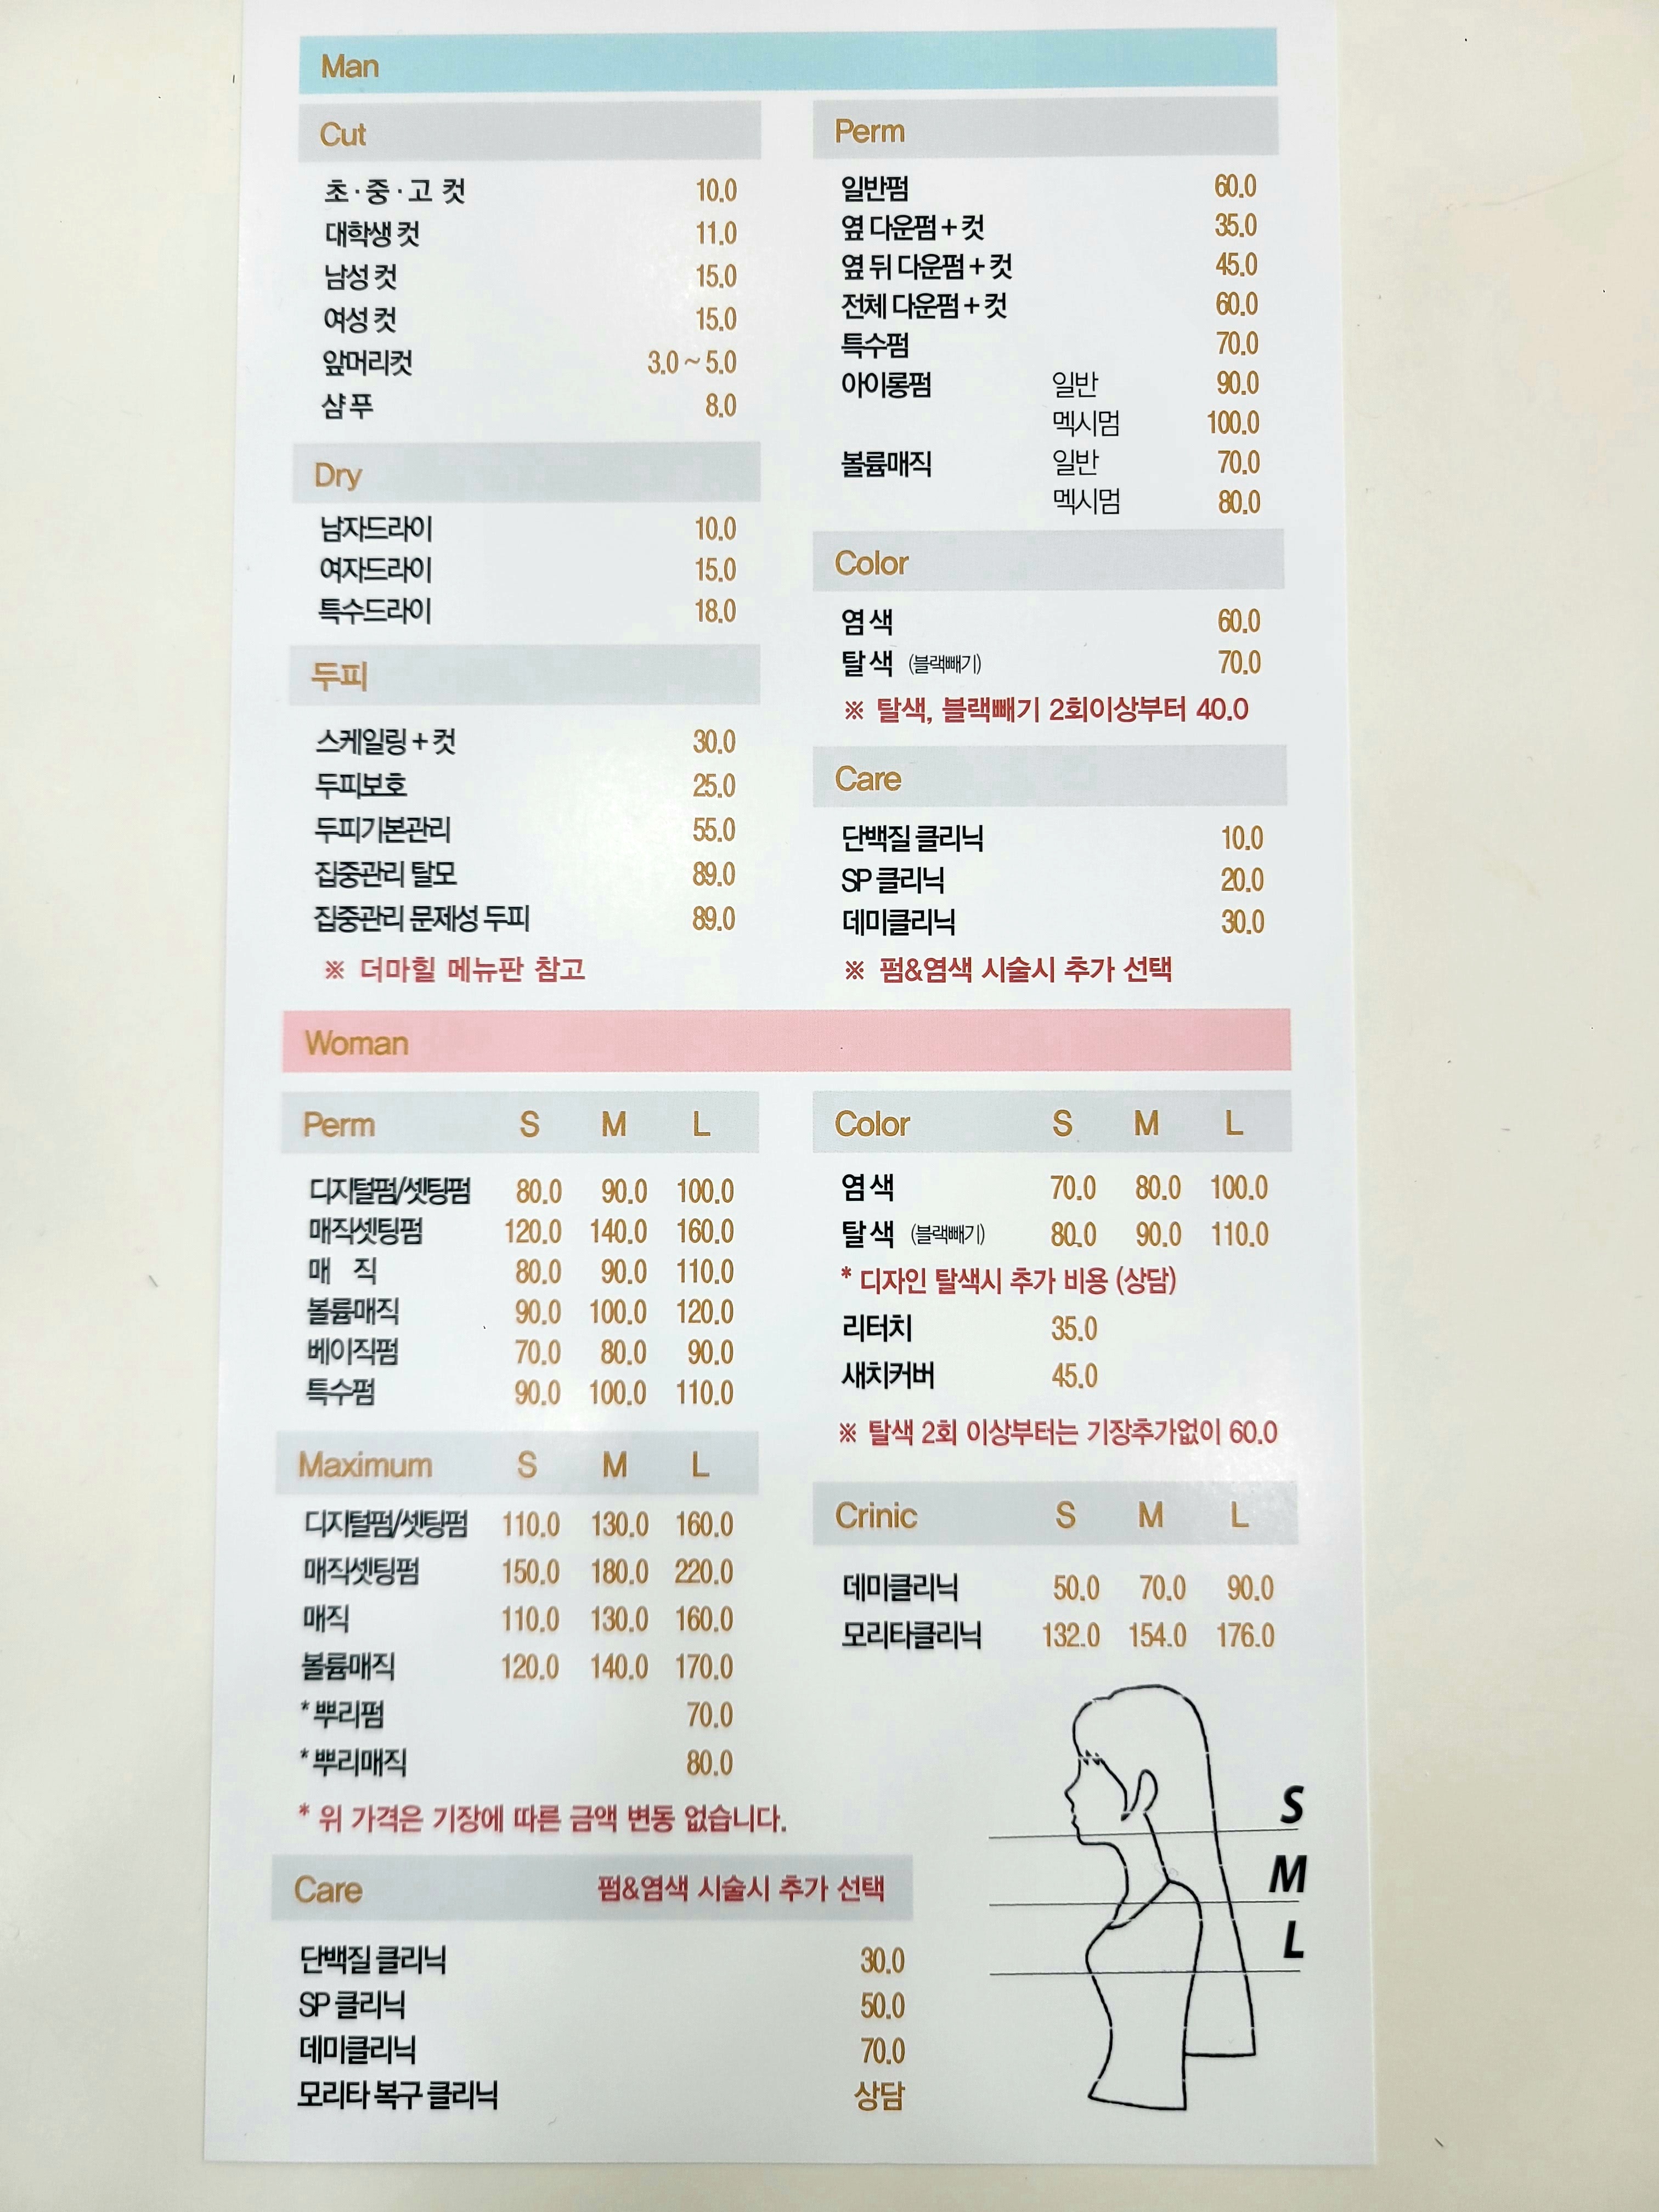 Man
Cut
초·중·고 컷 10.0
대학생 컷 11.0
남성 컷 15.0
여성 컷 15.0
앞머리컷 3.0 ~ 5.0
샴 푸 8.0
Dry
남자드라이 10.0
여자드라이 15.0
특수드라이 18.0
두피
스케일링 + 컷 30.0
두피보호 25.0
두피기본관리 55.0
집중관리 탈모 89.0
집중관리 문제성 두피 89.0
※ 더마힐 메뉴판 참고
Perm
일반펌 60.0
옆 다운펌 + 컷 35.0
옆 뒤 다운펌 + 컷 45.0
전체 다운펌 + 컷 60.0
특수펌 70.0
아이롱펌 일반 90.0
멕시멈 100.0
볼륨매직 일반 70.0
멕시멈 80.0
Color
염 색 60.0
탈 색 (블랙빼기) 70.0
※ 탈색, 블랙빼기 2회이상부터 40.0
Care
단백질 클리닉 10.0
SP 클리닉 20.0
데미클리닉 30.0
※ 펌&염색 시술시 추가 선택
Woman
Perm S M L
디지털펌/셋팅펌 80.0 90.0 100.0
매직셋팅펌 120.0 140.0 160.0
매 직 80.0 90.0 110.0
볼륨매직 90.0 100.0 120.0
베이직펌 70.0 80.0 90.0
특수펌 90.0 100.0 110.0
Maximum S M L
디지털펌/셋팅펌 110.0 130.0 160.0
매직셋팅펌 150.0 180.0 220.0
매직 110.0 130.0 160.0
볼륨매직 120.0 140.0 170.0
* 뿌리펌 70.0
* 뿌리매직 80.0
* 위 가격은 기장에 따른 금액 변동 없습니다.
Care 펌&염색 시술시 추가 선택
단백질 클리닉 30.0
SP 클리닉 50.0
데미클리닉 70.0
모리타 복구 클리닉 상담
Color S M L
염 색 70.0 80.0 100.0
탈 색 (블랙빼기) 80.0 90.0 110.0
* 디자인 탈색시 추가 비용 (상담)
리터치 35.0
새치커버 45.0
※ 탈색 2회 이상부터는 기장추가없이 60.0
Crinic S M L
데미클리닉 50.0 70.0 90.0
모리타클리닉 132.0 154.0 176.0
S
M
L